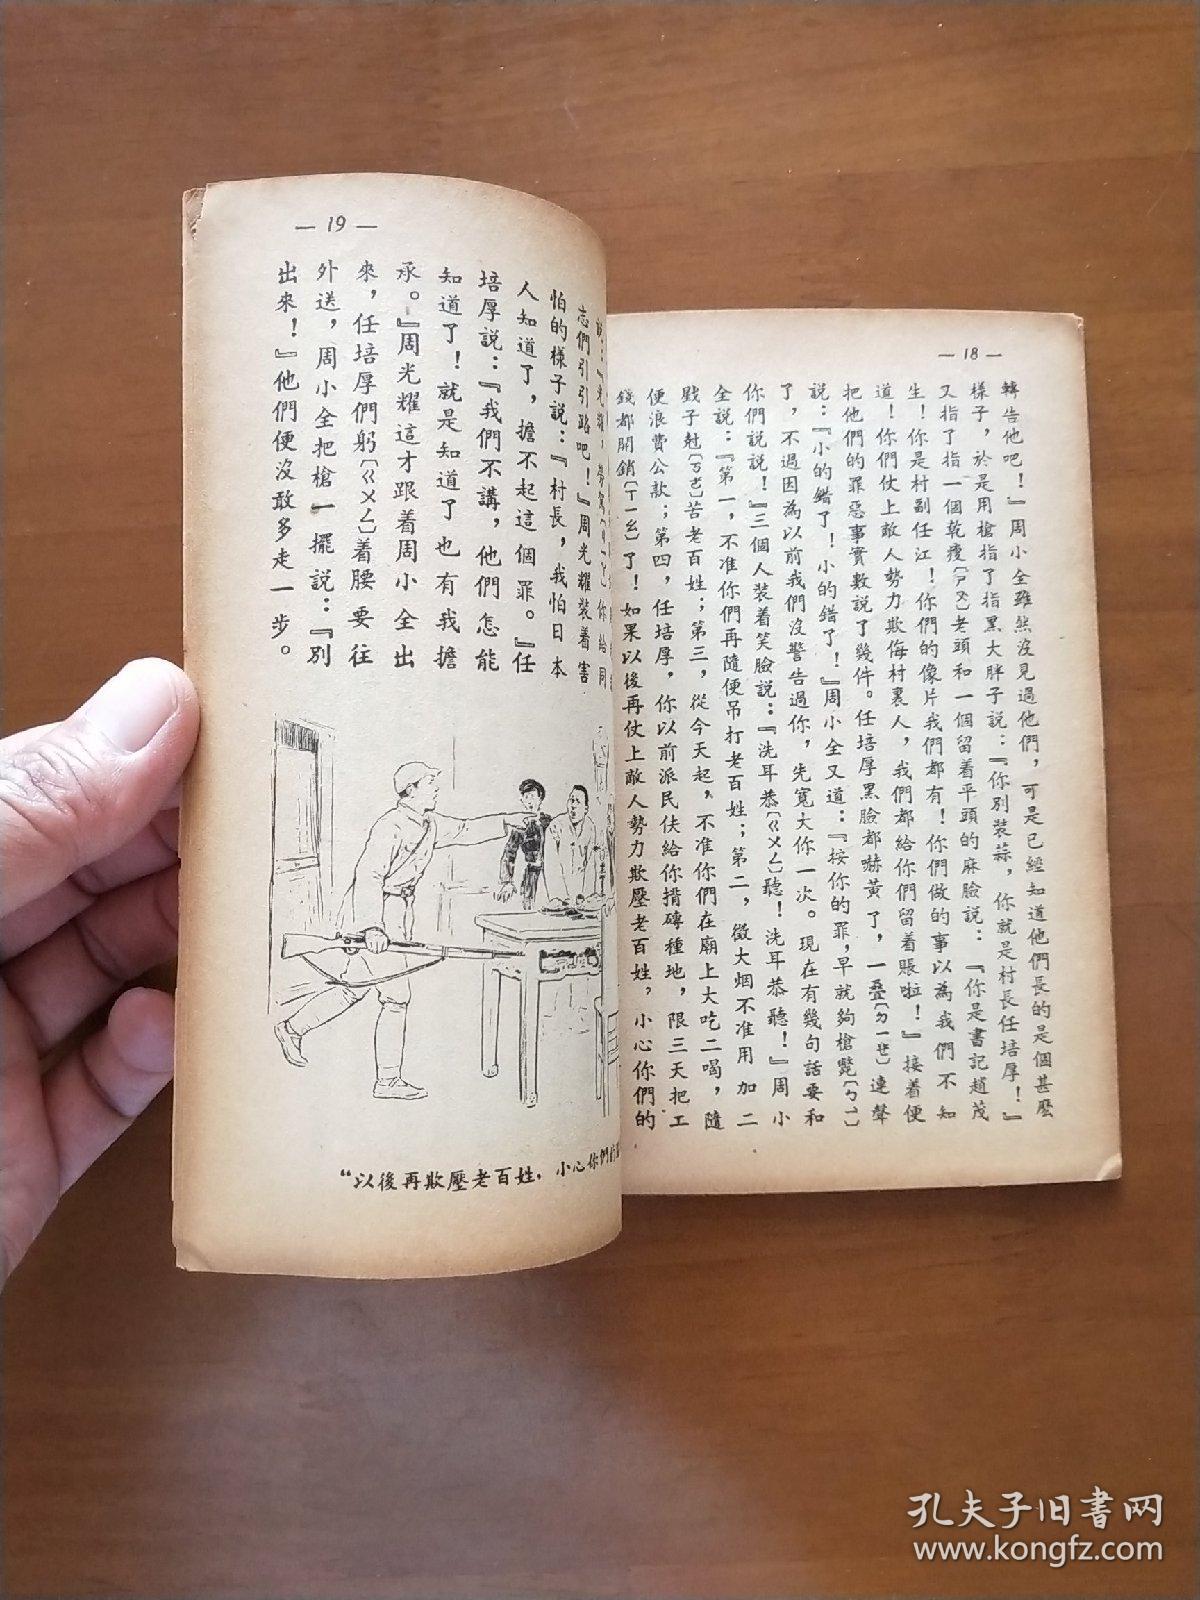 — 18 —
轉告他吧！』周小全雖然沒見過他們，可是已經知道他們長的是個甚麼
樣子，於是用槍指了指黑大胖子說：『你別裝蒜，你就是村長任培厚！』
又指了指一個乾瘦〔ㄕㄡ〕老頭和一個留着平頭的麻臉說：『你是書記趙茂
生！你是村副任江！你們的像片我們都有！你們做的事以為我們不知
道！你們仗上敵人勢力欺侮村裏人，我們都給你們留着賬啦！』接着便
把他們的罪惡事實數說了幾件。任培厚黑臉都嚇黃了，一疊〔ㄉㄧㄝ〕連聲
說：『小的錯了！小的錯了！』周小全又道：『按你的罪，早就夠槍斃〔ㄅㄧ〕
了，不過因為以前我們沒警告過你，先寬大你一次。現在有幾句話要和
你們說說！』三個人装着笑臉說：『洗耳恭〔ㄍㄨㄥ〕聽！洗耳恭聽！』周小
全說：『第一，不准你們再隨便吊打老百姓；第二，徵大烟不准用加二
戥子尅〔ㄎㄜ〕苦老百姓；第三，從今天起，不准你們在廟上大吃二喝，隨
便浪費公款；第四，任培厚，你以前派民伕給你揹磚種地，限三天把工
錢都開銷〔ㄒㄧㄠ〕了！如果以後再仗上敵人勢力欺壓老百姓，小心你們的
— 19 —
說：『光耀，勞駕〔ㄐㄧㄚ〕你給同
志們引引路吧！』周光耀装着害
怕的樣子說：『村長，我怕日本
人知道了，擔不起這個罪。』任
培厚說：『我們不講，他們怎能
知道了！就是知道了也有我擔
承。』周光耀這才跟着周小全出
來，任培厚們躬〔ㄍㄨㄥ〕着腰要往
外送，周小全把槍一擺說：『別
出來！』他們便沒敢多走一步。
“以後再欺壓老百姓，小心你們
孔夫子旧书网
www.kongfz.com